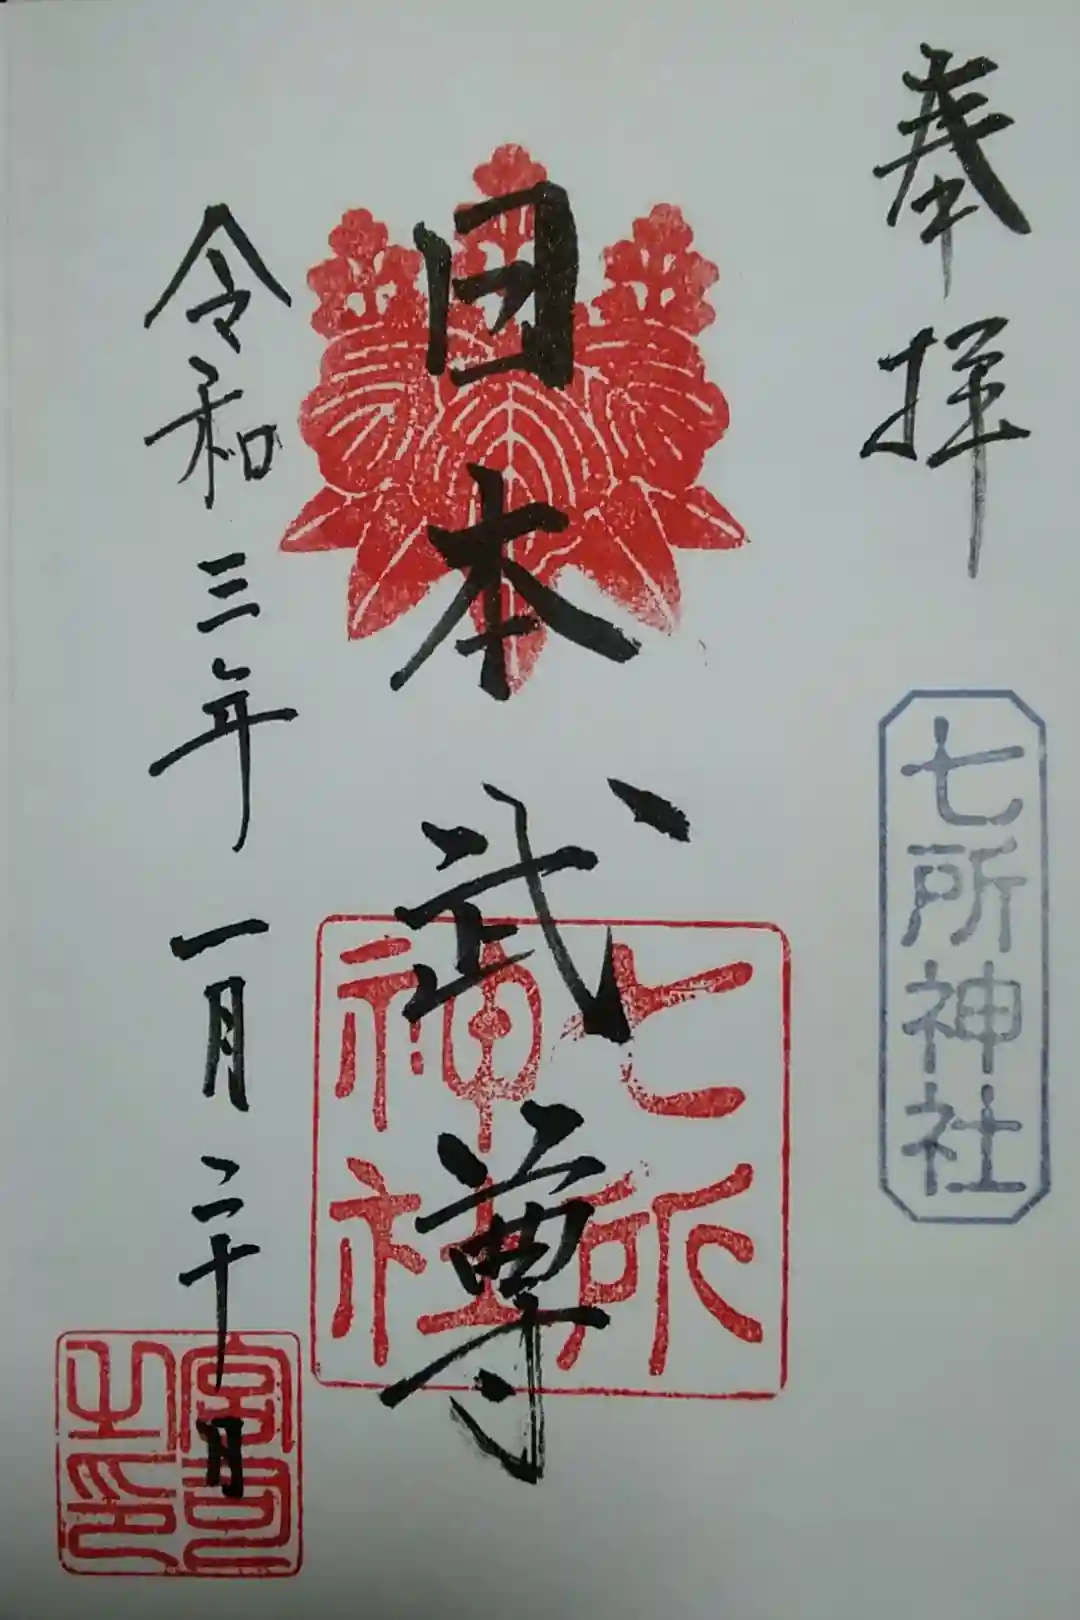 奉拝
七所神社
日本武尊
七所
神社
令和三年一月二十日
宮司
之印